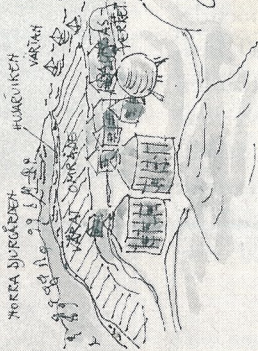 NORRA DJURGÅRDEN
HUSARVIKEN
VÄRTAN
VÅRAT OMRÅDE